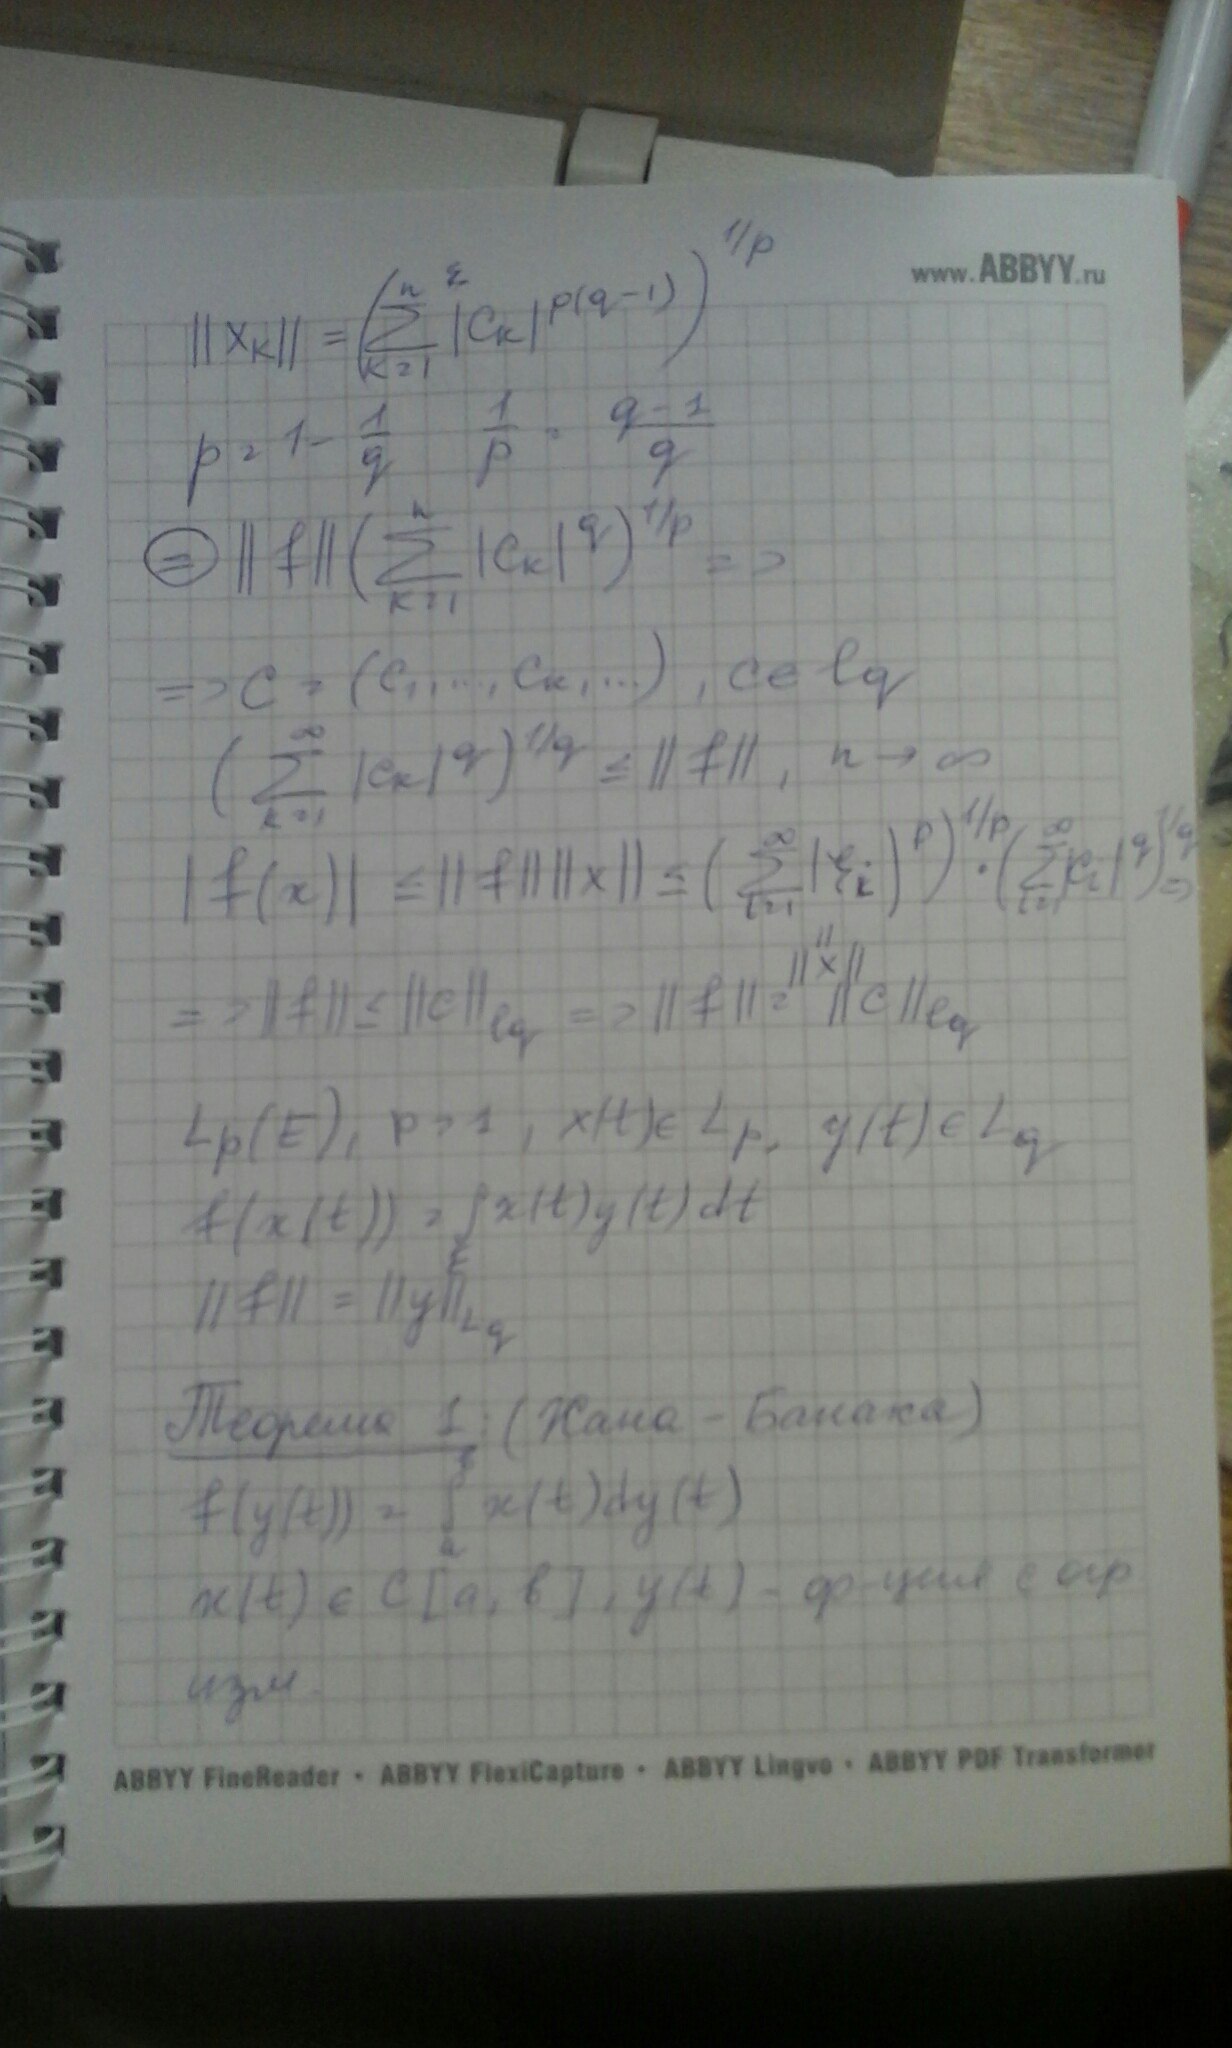 www.ABBYY.ru
||x_k|| = (∑_{k=1}^{n} |c_k|^{p(q-1)})^{1/p}
p = 1 - 1/q   1/p = (q-1)/q
(=) ||f|| (∑_{k=1}^{n} |c_k|^q)^{1/p} =>
=> C = (c_1, ..., c_k, ...), c ∈ l_q
(∑_{k=1}^{∞} |c_k|^q)^{1/q} ≤ ||f||, n → ∞
|f(x)| ≤ ||f|| ||x|| ≤ (∑_{i=1}^{∞} |ξ_k|)^p)^{1/p} · (∑_{i=1}^{∞} |c_i|^q)^{1/q} =>
|| ||x||
=> ||f|| ≤ ||c||_{l_q} => ||f|| = ||c||_{l_q}
L_p(E), p > 1, x(t) ∈ L_p, y(t) ∈ L_q
f(x(t)) = ∫_E x(t)y(t)dt
||f|| = ||y||_{L_q}
Теорема 1: (Хана - Банаха)
f(y(t)) = ∫_a^b x(t)dy(t)
x(t) ∈ C[a, b], y(t) - ф-ция с огр
изм.
ABBYY FineReader • ABBYY FlexiCapture • ABBYY Lingvo • ABBYY PDF Transformer